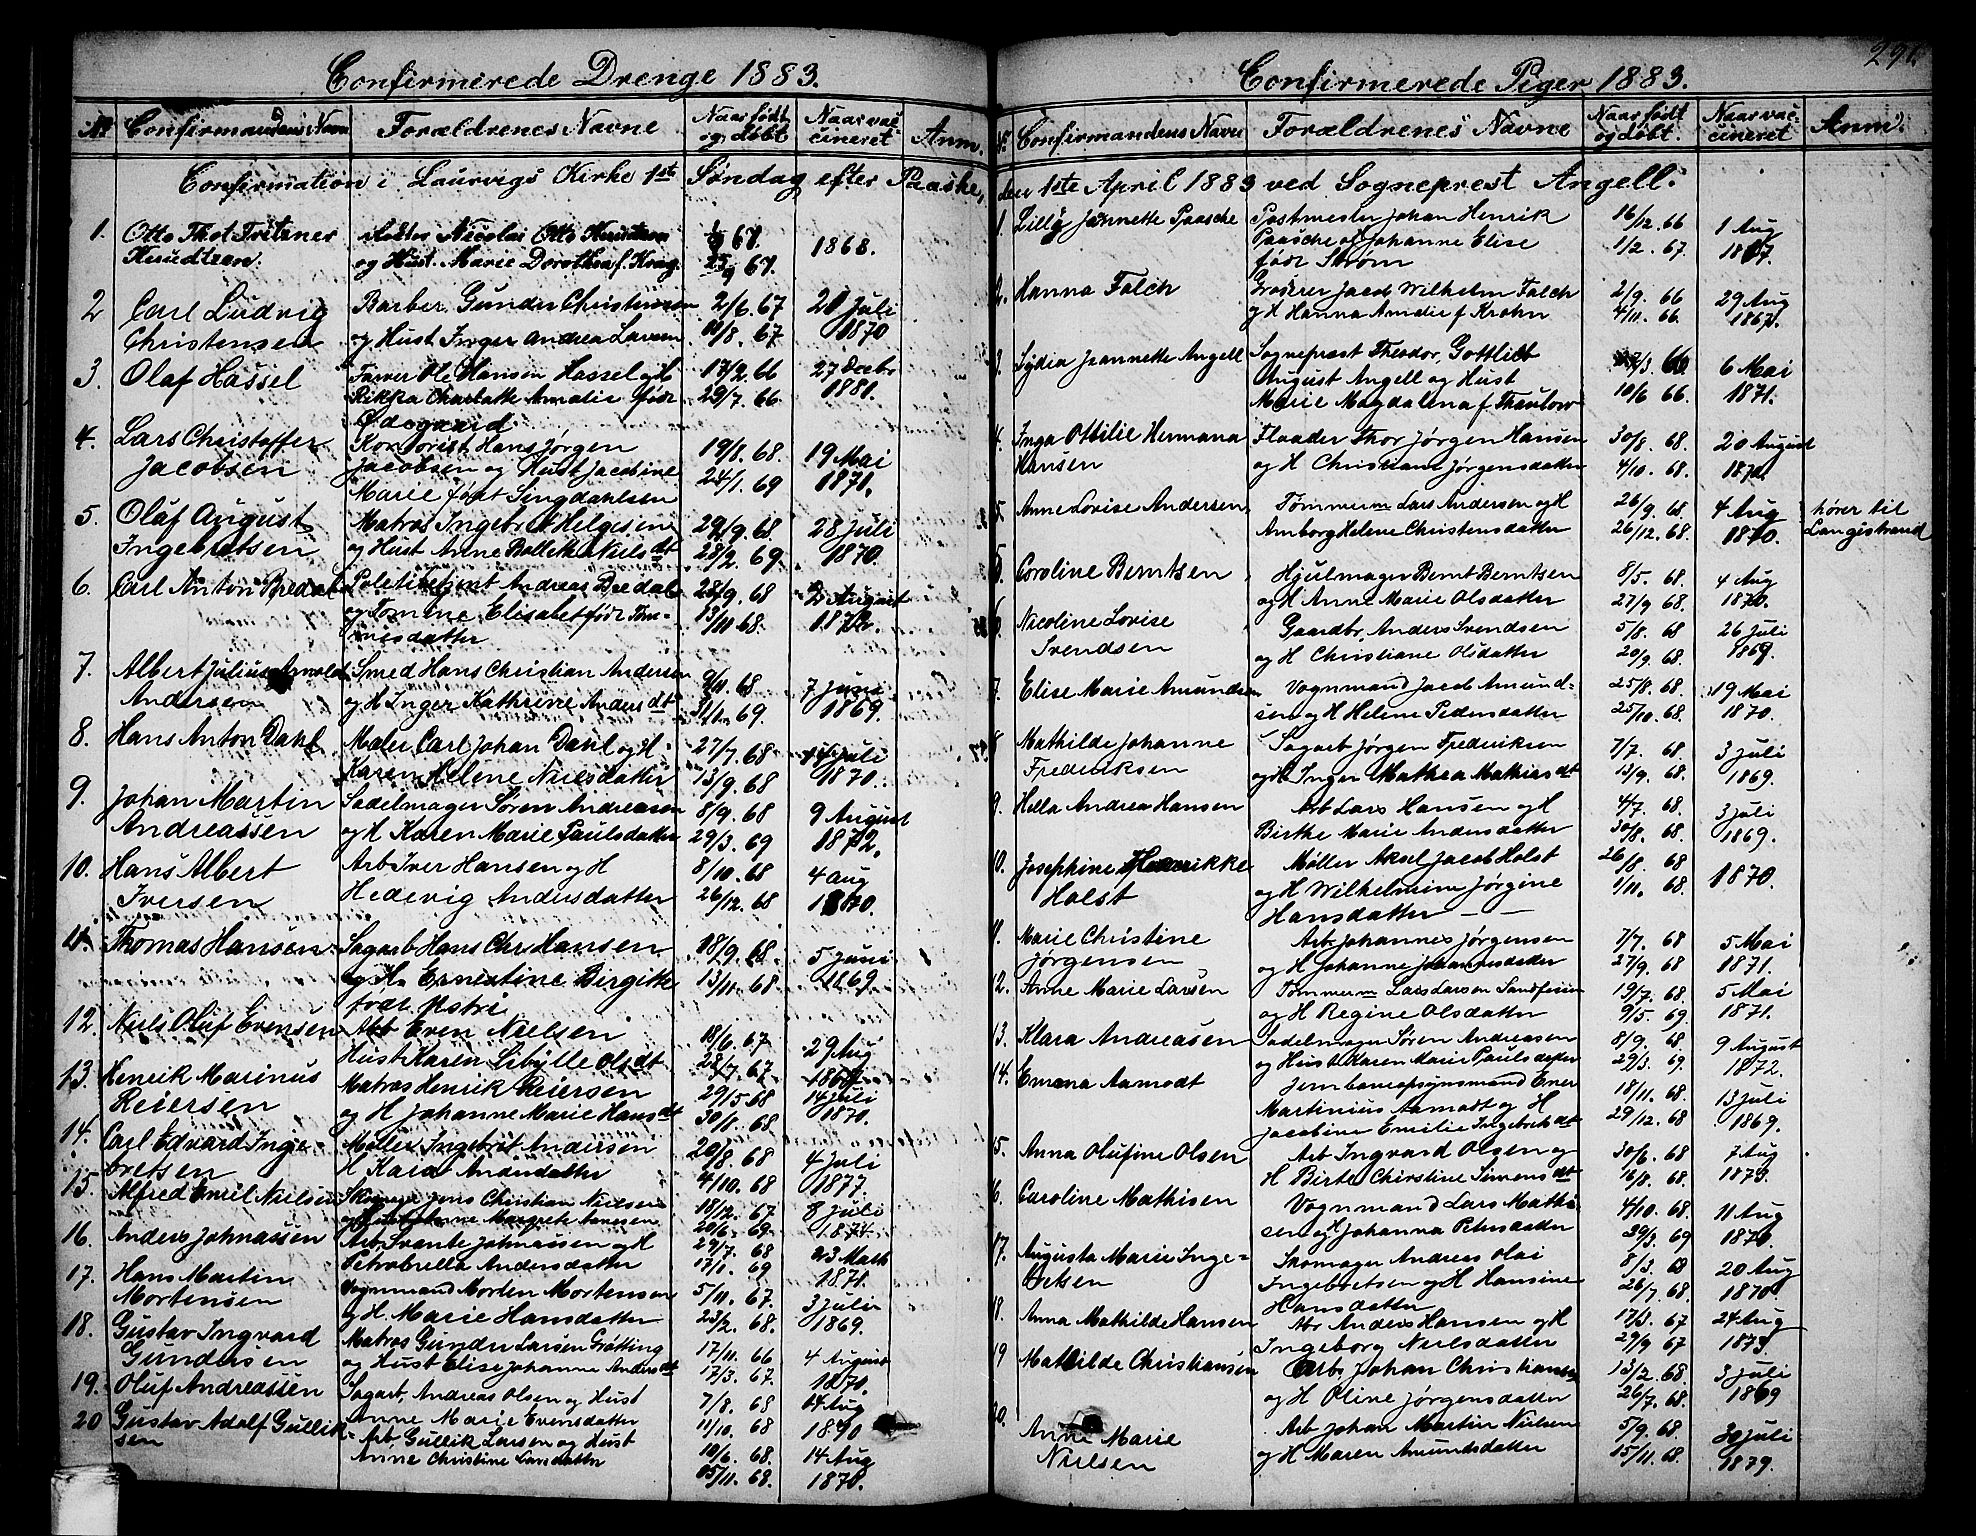 291.
Confirmerede Drenge 1883.
No Confirmandens Navn Forældrenes Navne Naar født og døbt Naar vaccineret Anm.
Confirmation i Laurvigs Kirke 1ste Søndag efter Paaske,
1. Otto Thot Fritzner Nicolai Otto Knudtzon 67. 1868.
Knudtzon. og Hust. Marie Dorothea f. Krag. 67.
2 Carl Ludvig Barber Gunder Christensen 2/6. 67 20 Juli
Christensen og Hust Inger Andrea Larsen 67 1870
3. Olaf Hassel Farver Ole Hansen Hassel og H 13/2. 66 27 Decbr
Rikka Charlotte Amalie født 29/7. 66 1881.
Ødegaard
4. Lars Christoffer Kontorist Hans Jørgen 19/8. 68. 19 Mai
Jacobsen Jacobsen og Hust Jacobine 24/1. 69 1871.
Marie født Syngdahlsen
5. Oluf August Matros Ingebret Helgesen 29/9. 68 28 Juli
Ingebretsen og Hust Anne Bollette Nielsdt 28/2. 69. 1870.
6. Carl Anton Bredal Politibetjent Andreas Bredal 28/9. 68 2 August
og Tomine Elisabet født Tom- 13/11 68. 1872.
mesdatter
7. Albert Julius Arnold Smed Hans Christian Andersen 9/11. 68 7 Juni
Andersen og H Inger Kathrine Andersdt 31/1. 69. 1869.
8. Hans Anton Dahl Maler Carl Johan Dahl og H 27/7. 68 Juli
Karen Helene Nielsdatter 13/9. 68 1870.
9. Johan Martin Sadelmager Søren Andreasen 8/9. 68 9 August
Andreassen og H Karen Marie Paulsdatter 29/3. 69 1872.
10. Hans Albert Arb Iver Hansen og H 8/10. 68 4 Aug
Iversen Hedevig Andersdatter 26/12. 68 1870.
11. Thomas Hansen Sagarb Hans Chr Hansen 18/9. 68. 5 Juni
og H. Ernestine Birgitte 13/11. 68 1869.
født Østri
12. Niels Oluf Evensen Arb Even Nielsen 18/6. 67. 29 Aug
Hust Karen Sibylle Olsdt 28/7. 67
13. Henrik Marinus Matros Henrik Reiersen 29/5 68 14 Juli
Reiersen og H Johanne Marie Hansdt 30/8. 68 1870.
14. Carl Edvard Inge- Møller Ingebret Andersen 20/8. 68 4 Juli
bretsen H Kara Andersdatter 4/10. 68 1877.
15. Alfred Emil Nielsen Jens Christian Nielsen 18/12. 67 8 Juli
og Hust Anne Margrete 20/6. 69. 1874.
16. Anders Johnassen Arb. Svante Johnassen og H 29/7. 68 23 Marts
Petrobrella Andersdatter 17/1. 69 1871.
17. Hans Martin Vognmand Morten Mortensen 5/11. 67. 3 Juli
Mortensen og H. Marie Hansdatter 23/2. 68. 1869.
18. Gustav Ingvard Matros Gunder Larsen Grotting 17/11. 66 4 August
Gundersen og Hust Elise Johanne Andersdt 17/3. 67. 1870.
19. Oluf Andreassen Sagarb. Andreas Olsen og Hust 7/8. 68 Aug
Anne Marie Evensdatter 11/10. 68 1890
20 Gustav Adolf Gullik- Arb. Gullik Larsen og Hust 10/6. 68. 14 Aug
sen Anne Christine Larsdatter 15/11. 68. 1870.
Confirmerede Piger 1883.
No. Confirmandens Navn Forældrenes Navne Naar født og døbt Naar vaccineret Anm.
den 1ste April 1883 ved Sogneprest Angell.
1. Lilly Jannette Paasche Postmester Johan Henrik 16/12. 66 1 Aug
Paasche og Johanne Elise 1/2. 67. 1867.
født Strøm
2. Hanna Falch Jacob Wilhelm Falch 2/9. 66 29 Aug
og H Hanna Amalie f. Krohn 4/11. 66. 1867.
3. Lydia Jeannette Angell Sogneprest Theodor Gottlieb 6 Mai
August Angell og Hust 10/6 66. 1871.
Marie Magdalena f Thaulow
4. Inga Ottilie Hermana Flaader Thor Jørgen Hansen 30/8. 68. 20 August
Hansen og H Christiane Jørgensdatter 4/10. 68. 1870.
5. Anne Lovise Andersen Tømmerm Lars Andersen og H 26/9. 68 4 Aug hører til
Amborg Helene Christensdatter 26/12. 68. 1870. Langestrand
5. Caroline Berntsen Hjulmager Bernt Berntsen 8/5. 68. 4 Aug
og H Anne Marie Olsdatter 27/9 68. 1870.
6. Nicoline Lovise Gaardbr. Anders Svendsen 5/8. 68 26 Juli
Svendsen og H Christiane Olsdatter 20/9. 68. 1869.
7. Elise Marie Amundsen Vognmand Jacob Amund- 25/8. 68 19 Mai
sen og H Helene Pedersdatter 25/10. 68. 1870.
8 Mathilde Johanne Sagarb Jørgen Frederiksen 7/7. 68 3 Juli
Frederiksen og H Inger Mathea Mathiesdt 13/9. 68. 1869.
9. Hella Andrea Hansen Arb Lars Hansen og H 4/7. 68. 3 Juli
Birthe Marie Andersdatter 30/8. 68. 1869.
10. Josephine Henrikke Møller Aksel Jacob Holst 26/8. 68 1870.
Holst og H Wilhelmine Jørgine 1/11. 68.
Hansdatter — —
11. Marie Christine Arb Johannes Jørgensen 7/7. 68 5 Mai
Jørgensen og H Johanne Johannesdatter 27/9. 68 1871.
12. Anne Marie Larsen Tømmerm Lars Larsen 19/7. 68 5 Mai
og H Regine Olsdatter 9/5. 69 1871.
13. Klara Andreasen Sadelmager Søren Andreasen 8/9. 68 9 August
og Hust Karen Marie Paulsdatter 29/3. 69. 1872.
14. Emma Aamodt Jernbaneopsynsmand Ener 18/11. 68. 13 Juli
Martinius Aamodt og H 29/12. 68 1869.
Jacobine Emilie Ingebretsdt
15. Anna Olufine Olsen Arb Ingvard Olsen og 30/6. 68 7 Aug
H Birte Christine Simensdt 16/8. 68 1873.
16. Caroline Mathisen Vognmand Lars Mathi- 4/10. 68. 11 Aug
sen og H Johanna Petersdatter 29/3. 69 1870.
17. Augusta Marie Inge- Skomager Andreas Olai 8/3. 68 20 Aug
bretsen Ingebretsen og H Hansine 26/7. 68. 1870.
Hansdatter
18. Anna Mathilde Hansen Arb Anders Hansen og H 17/3. 67 24 Aug
Ingeborg Nielsdatter 29/9 67 1873.
19 Mathilde Christiansen Arb. Johan Christiansen 13/2. 68. 3 Juli
og H Oline Jørgensdatter 26/7. 68. 1869
20. Anne Marie Arb Johan Martin Nielsen 5/9. 68. 30 Juli
Nielsen og H Maren Amundsdatter 15/11. 68. 1879.